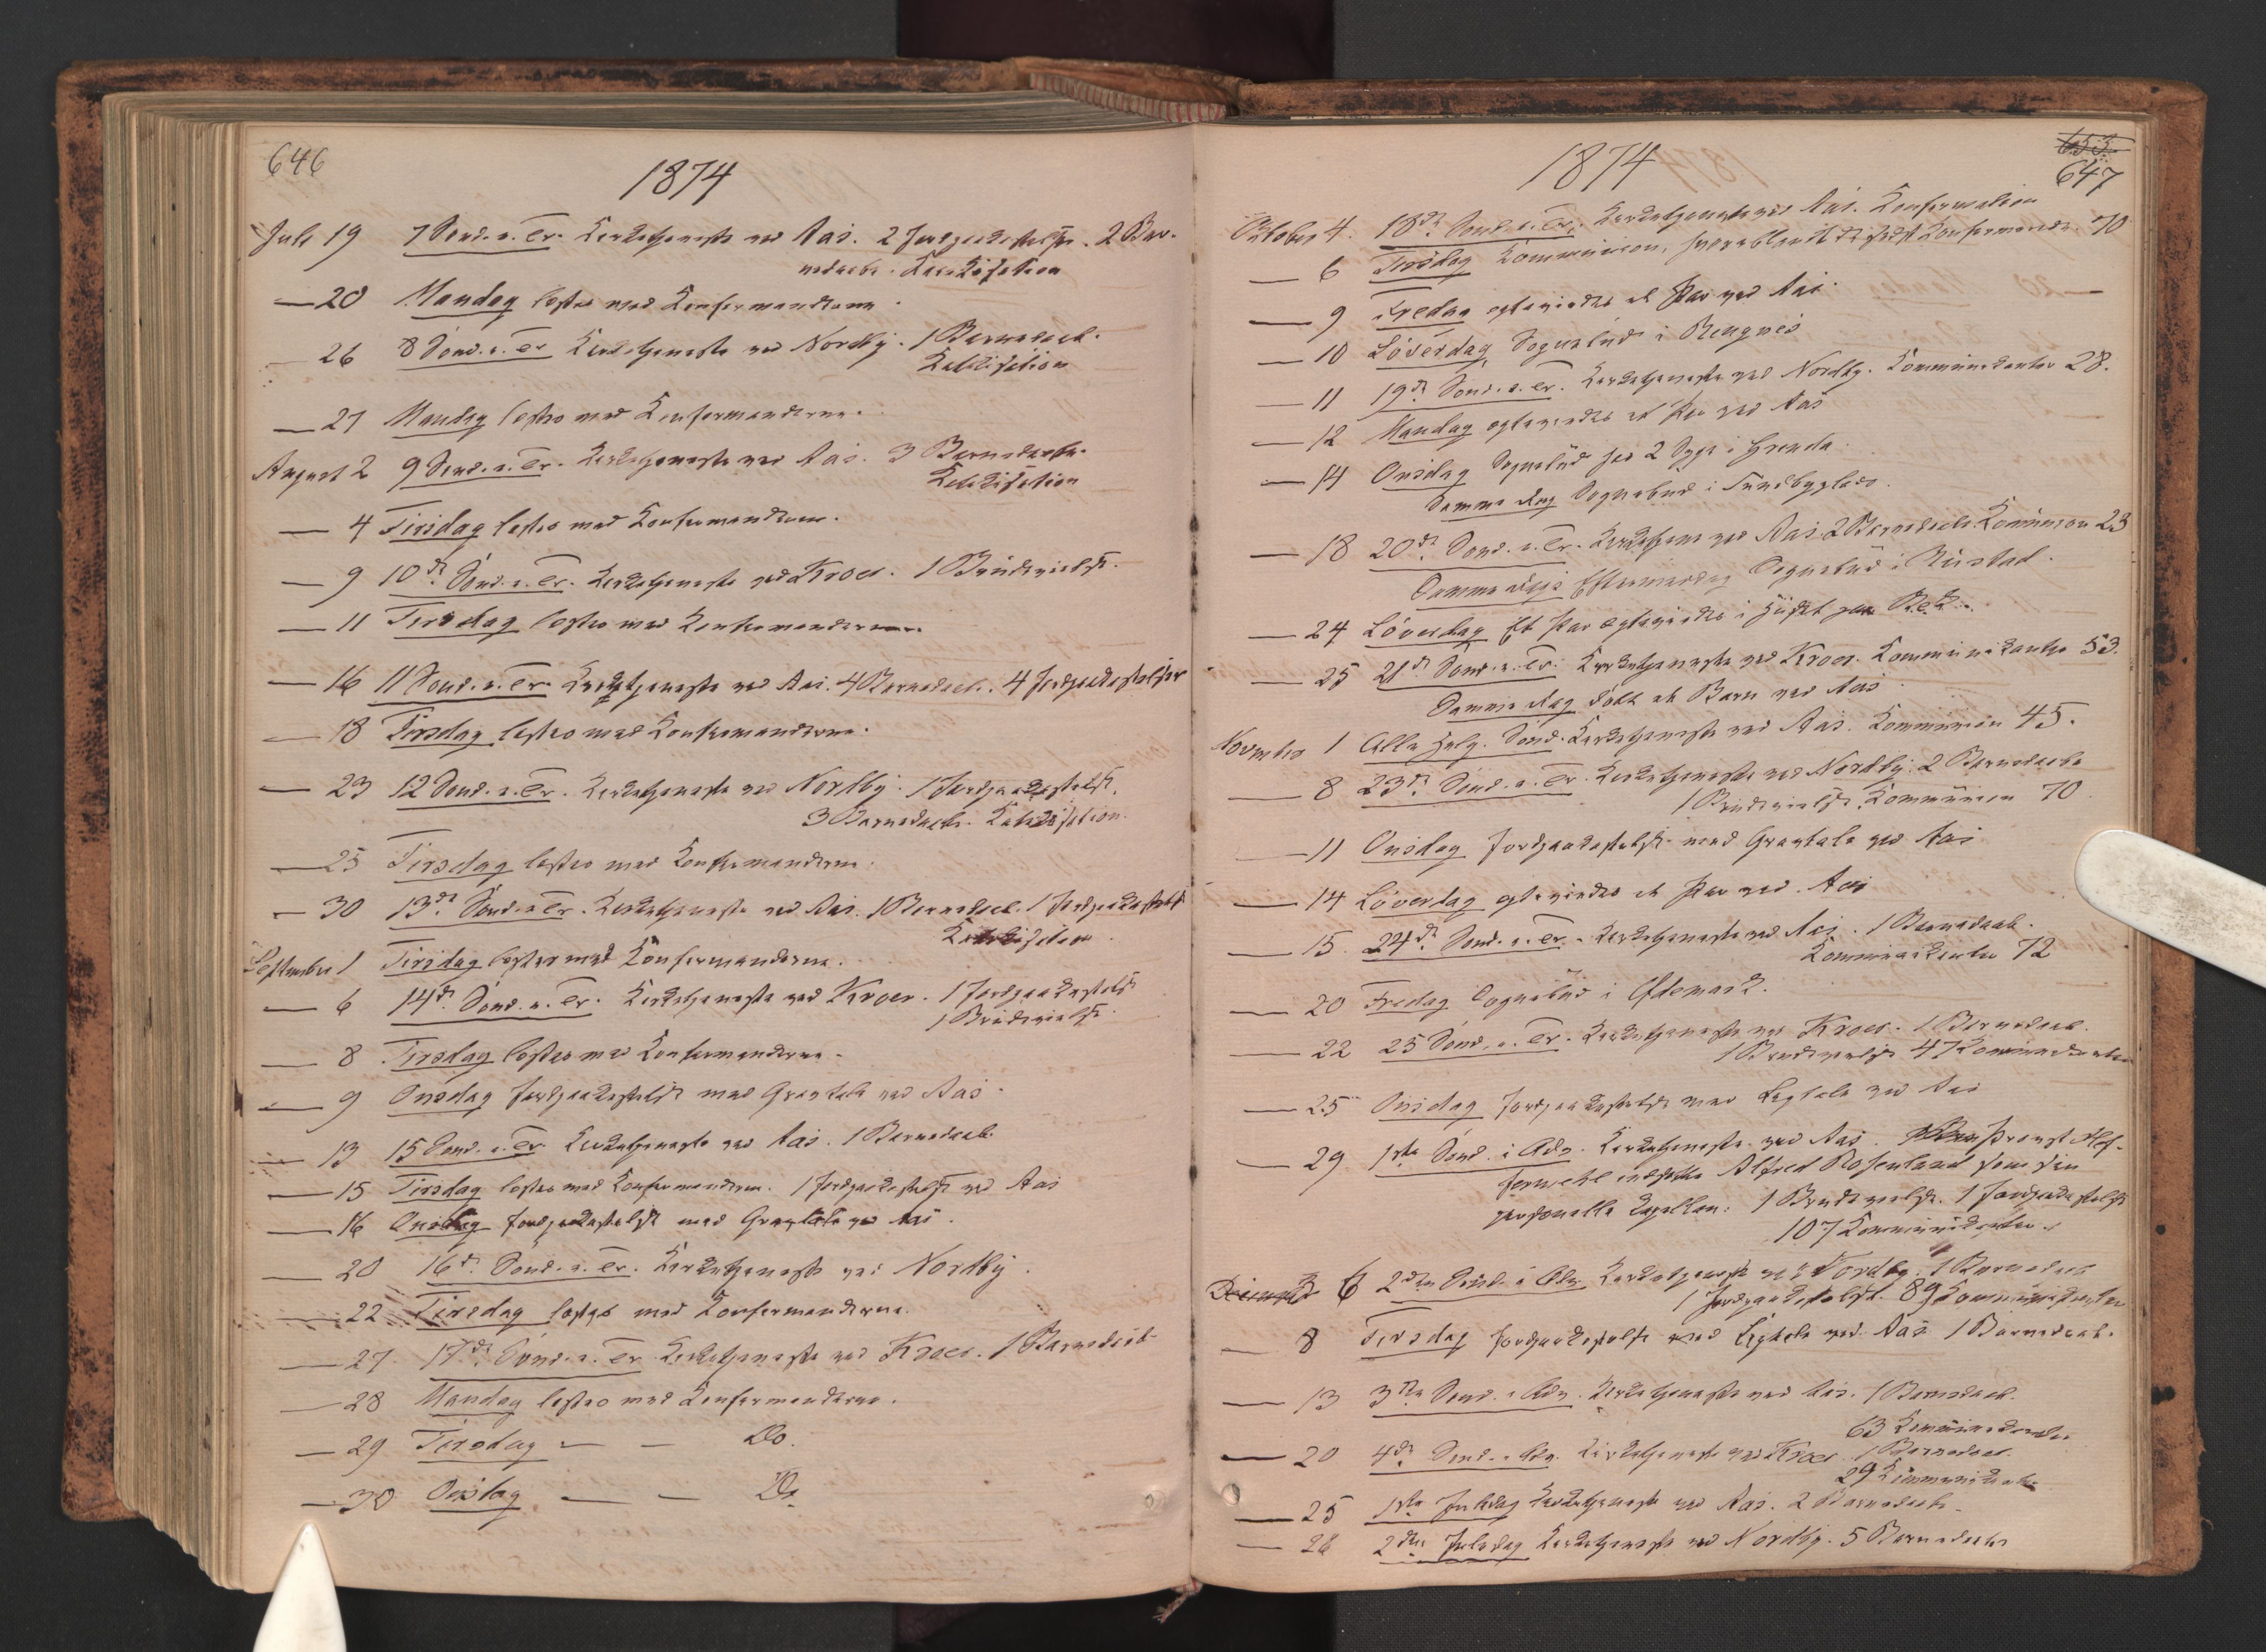 646
1874
Juli 19 7 Sønd. e. Tr. Kirketjeneste ved Aas. 2 Jordpaakastelser. 2 Bar-
nedaabe. Katekisation
— 20 Mandag læstes med Konfirmanderne.
— 26 8 Sønd. e. Tr. Kirketjeneste ved Nordby. 1 Barnedaab.
Katekisation
— 27 Mandag læstes med Konfirmanderne.
August 2 9 Sønd. e. Tr. Kirketjeneste ved Aas. 3 Barnedaabe.
Katekisation
— 4 Tirsdag læstes med Konfirmanderne.
— 9 10de Sønd. e. Tr. Kirketjeneste ved Kroer. 1 Brudevielse.
— 11 Tirsdag læstes med Konfirmanderne.
— 16 11 Sønd. e. Tr. Kirketjeneste ved Aas. 4 Barnedaab. 4 Jordpaakastelser
— 18 Tirsdag læstes med Konfirmanderne.
— 23 12 Sønd. e. Tr. Kirketjeneste ved Nordby. 1 Jordpaakastelse.
3 Barnedaab. Katekisation.
— 25 Tirsdag læstes med Konfirmanderne.
— 30 13de Sønd. e. Tr. Kirketjeneste ved Aas. 1 Barnedaab. 1 Jordpaakastelse
Katekisation.
September 1 Tirsdag læstes med Konfirmanderne.
— 6 14de Sønd. e. Tr. Kirketjeneste ved Kroer. 1 Jordpaakastelse
1 Brudevielse.
— 8 Tirsdag læstes med Konfirmanderne.
— 9 Onsdag Jordpaakastelse med Gravtale ved Aas.
— 13 15 Sønd. e. Tr. Kirketjeneste ved Aas. 1 Barnedaab.
— 15 Tirsdag læstes med Konfirmanderne. 1 Jordpaakastelse ved Aas
— 16 Onsdag Jordpaakastelse med Gravtale ved Aas.
— 20 16de Sønd. e. Tr. Kirketjeneste ved Nordby.
— 22 Tirsdag læstes med Konfirmanderne.
— 27 17de Sønd. e. Tr. Kirketjeneste ved Kroer. 1 Barnedaab
— 28 Mandag læstes med Konfirmanderne.
— 29 Tirsdag — — Do.
— 30 Onsdag — — Do.
653
647
1874
Oktober 4. 18de Sønd. e. Tr. Kirketjeneste ved Aas. Konfirmation
— 6 Tirsdag Kommunion, hvoriblandt de fleste Konfirmander. 70
— 9 Fredag egteviedes et Par ved Aas.
— 10 Løverdag Sognebud i
— 11 19de Sønd. e. Tr. Kirketjeneste ved Nordby. Kommunikanter 28.
— 12 Mandag egteviedes et Par ved Aas
— 14 Onsdag Sognebud for 2 Syge i
Samme Dag Sognebud i
— 18 20de Sønd. e. Tr. Kirketjene ved Aas. 2 Barnedaab. Kommunion 23
Samme Dags Eftermiddag Sognebud i Rustad.
— 24 Løverdag Et Par egteviedes i Huset
— 25 21de Sønd. e. Tr. Kirketjeneste ved Kroer. Kommunikanter 53.
Samme Dag døbt et Barn ved Aas.
November 1 Alle Helg. Sønd. Kirketjeneste ved Aas. Kommunion 45.
— 8 23de Sønd. e. Tr. Kirketjeneste ved Nordby. 2 Barnedaabe
1 Brudevielse. Kommunion 70.
— 11 Onsdag Jordpaakastelse med Gravtale ved Aas
— 14 Løverdag egteviedes et Par ved Aas
— 15. 24de Sønd. e. Tr. Kirketjeneste ved Aas. 1 Barnedaab.
Kommunikanter 72
— 20 Fredag Sognebud i
— 22 25 Sønd. e. Tr. Kirketjeneste ved Kroer. 1 Barnedaab.
1 Brudevielse 47 Kommunikanter
— 25 Onsdag Jordpaakastelse med Ligtale ved Aas
— 29 1ste Sønd. i Adv. Kirketjeneste ved Aas. Provst
indsatte Alfred som sin
personelle Kapellan. 1 Brudevielse. 1 Jordpaakastelse
107 Kommunikanter.
December 6 2den Sønd. i Adv. Kirketjeneste ved Nordby. 1 Barnedaab
1 Jordpaakastelse. 89 Kommunikanter
— 8 Tirsdag Jordpaakastelse med Ligtale ved Aas 1 Barnedaab.
— 13 3die Sønd. i Adv. Kirketjeneste ved Aas. 1 Barnedaab.
63 Kommunikanter
— 20 4de Sønd. i Adv. Kirketjeneste ved Kroer 1 Barnedaab.
29 Kommunikanter
— 25 1ste Juledag Kirketjeneste ved Aas. 2 Barnedaabe.
— 26 2den Juledag Kirketjeneste ved Nordby. 5 Barnedaabe